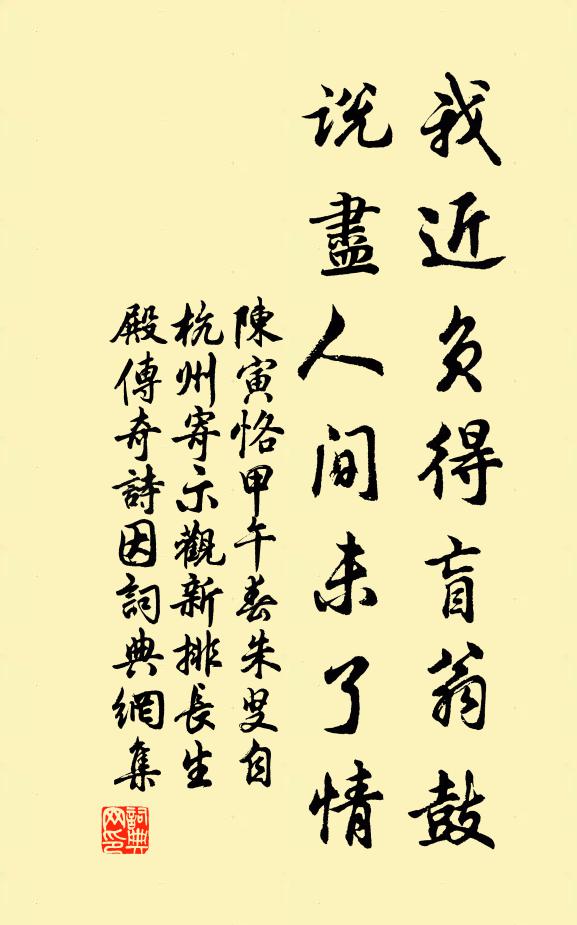 我近負得盲翁鼓
說盡人間未了情
陳寅恪甲午春朱叟自
杭州寄示觀新排長生
殿傳奇詩因詞典網集
詞典網印